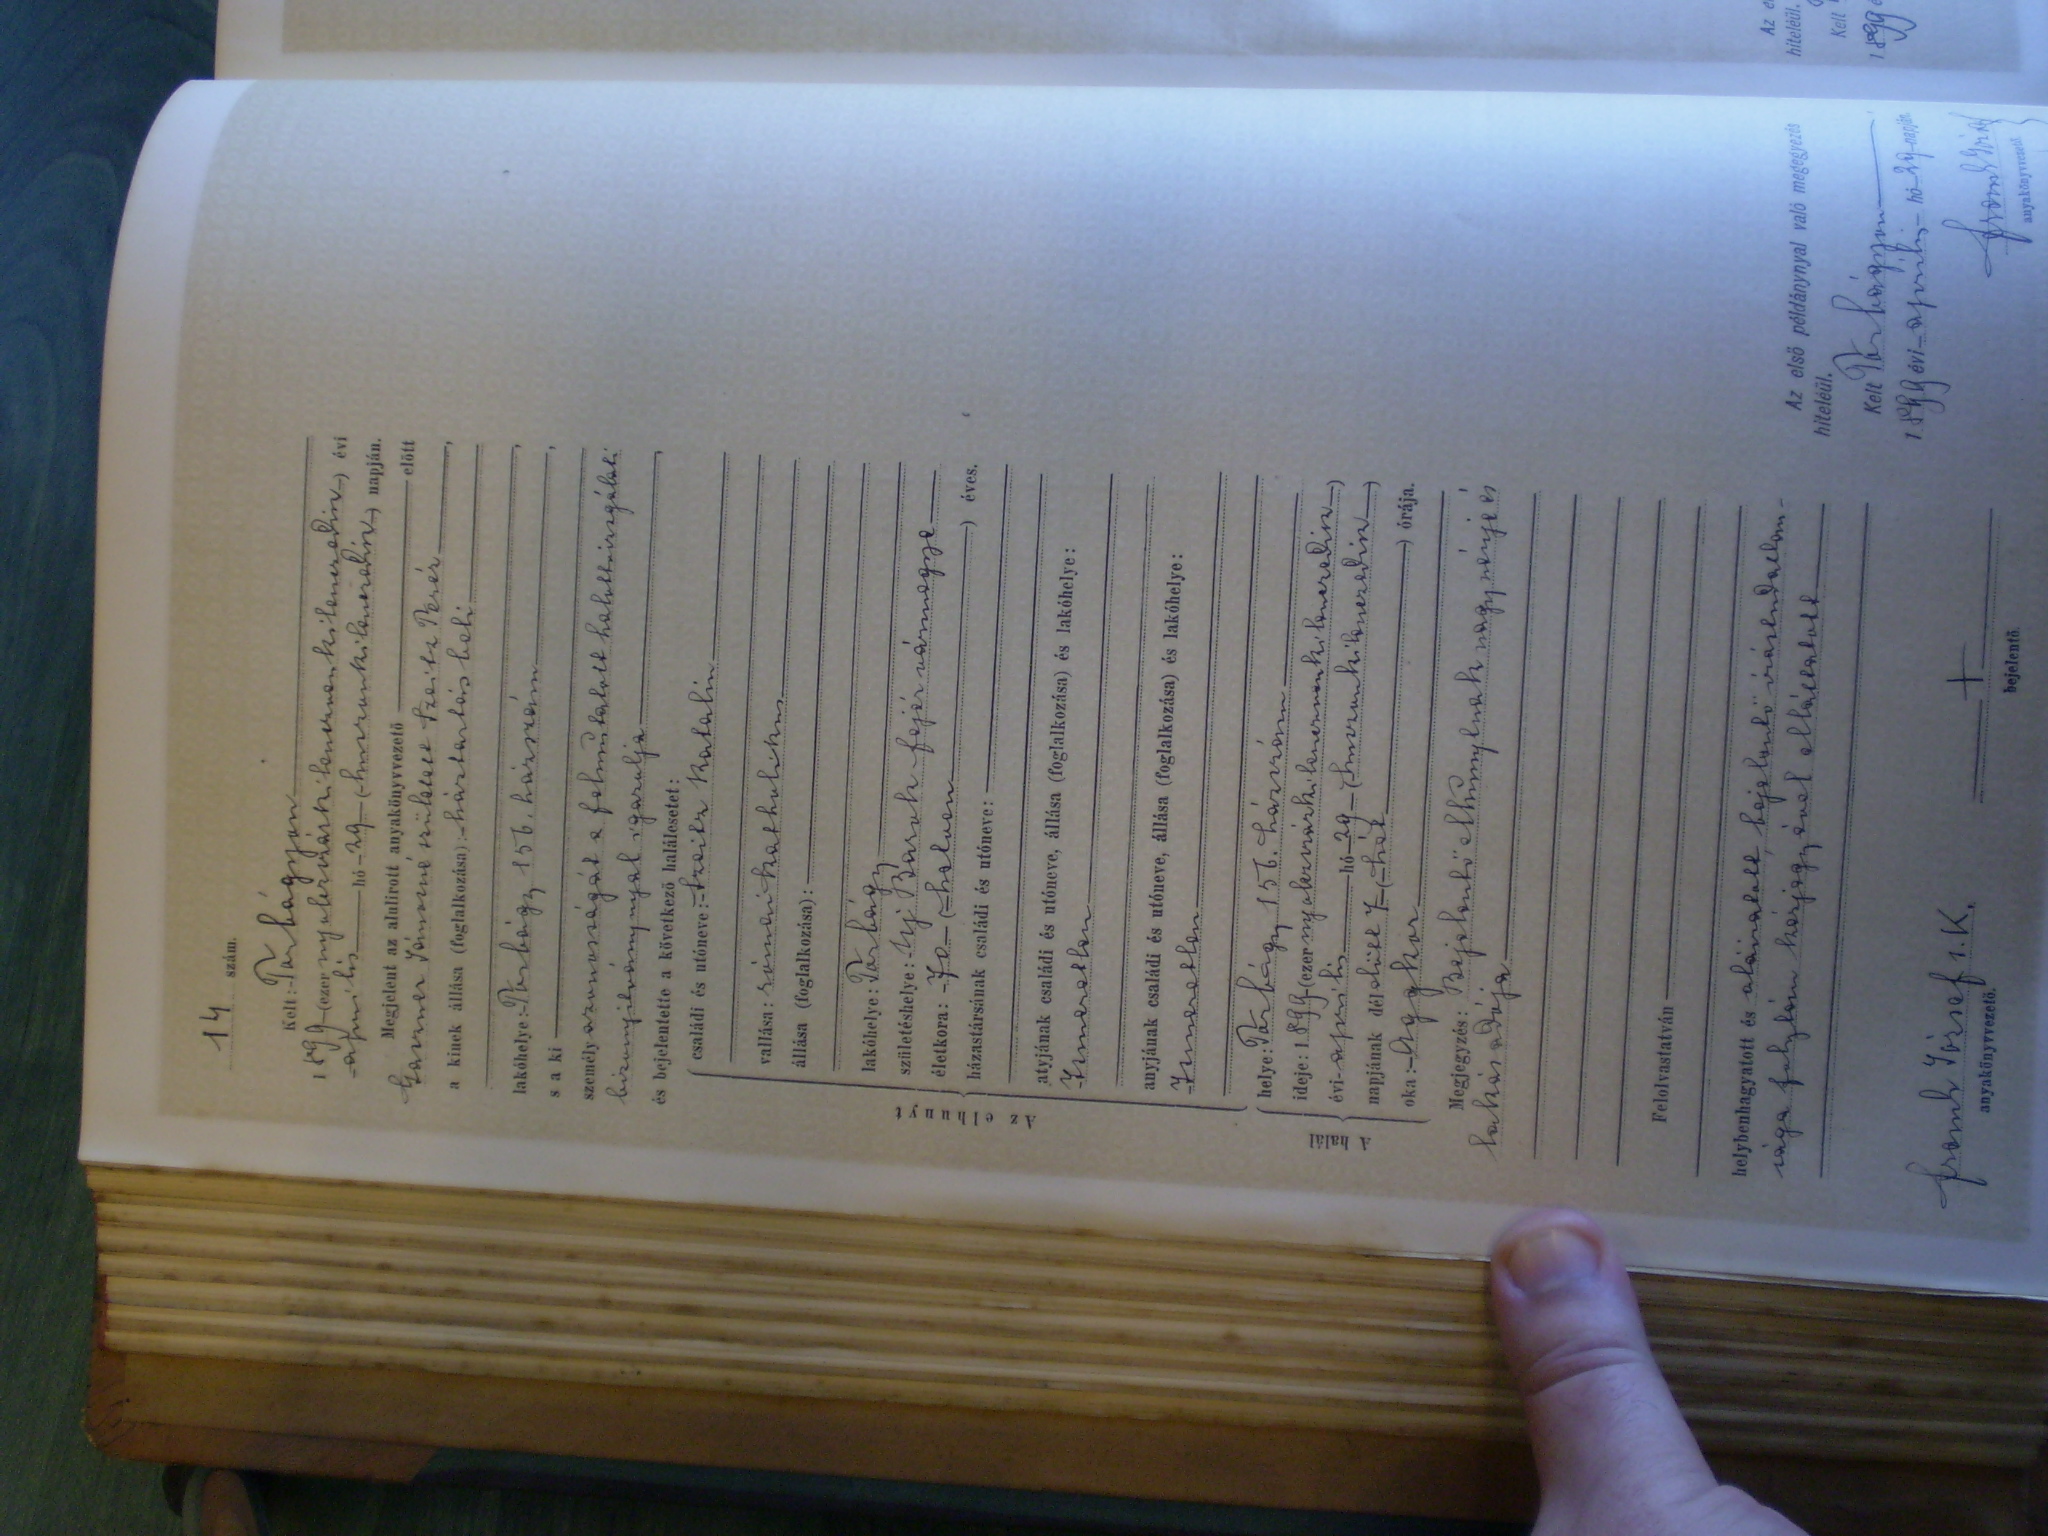 14 szám.
Kelt: Torbágyon
1899 (ezernyolczszázkilenczvenkilenczedik) évi
április hó 29 (huszonkilenczedik) napján.
Megjelent az alulirott anyakönyvvezető előtt
Jánosné született Szeitz Teréz
a kinek állása (foglalkozása): háztartásbeli
lakóhelye: Torbágy 156. házszám,
s a ki ,
személyazonosságát a felmutatott halottvizsgálati
bizonyítvánnyal igazolja,
és bejelentette a következő halálesetet:
Az elhunyt
családi és utóneve: Szeitz Katalin
vallása: római katholikus
állása (foglalkozása):
lakóhelye: Torbágy
születéshelye: Uj Barok fejér vármegye
életkora: 70 (hetven) éves.
házastársának családi és utóneve:
atyjának családi és utóneve, állása (foglalkozása) és lakóhelye:
Ismeretlen
anyjának családi és utóneve, állása (foglalkozása) és lakóhelye:
Ismeretlen
A halál
helye: Torbágy 156. házszám
ideje: 1899 (ezernyolczszázkilenczvenkilenczedik)
évi április hó 29 (huszonkilenczedik)
napjának délelőtt 7 (hét) órája.
oka: Aggkor
Megjegyzés: Bejelentő elhunytnak nagynénje és
lakásadója
Felolvastatván
helybenhagyatott és aláiratott, bejelentő írástudatlan-
sága folytán kézjegyével elláttatott
Az első példánynyal való megegyezés
hiteléül.
Kelt Torbágyon
1899 évi április hó 29 napján.
József s.k. +
anyakönyvvezető. bejelentő.
anyakönyvvezető.
Az el
hiteléül.
Kelt
1899 é